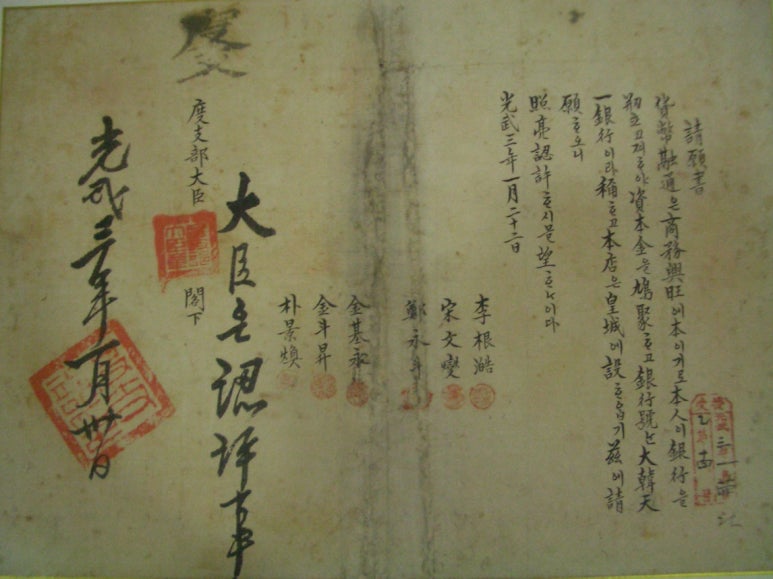 請願書
貨幣融通은商務興旺에本이기로本人이銀行을
刱立고져ᄒᆞ야資本金을鳩聚ᄒᆞ고銀行號ᄂᆞᆫ大韓天
一銀行이라稱ᄒᆞ고本店은皇城에設ᄒᆞ옵기玆에請
願ᄒᆞ오니
照亮認許ᄒᆞ시믈望ᄒᆞᄂᆞ이다
光武三年一月二十二日
李根澔
宋文燮
鄭永斗
金基永
金斗昇
朴景煥
大臣은認許事
度支部大臣 閣下
光武三年一月卅日